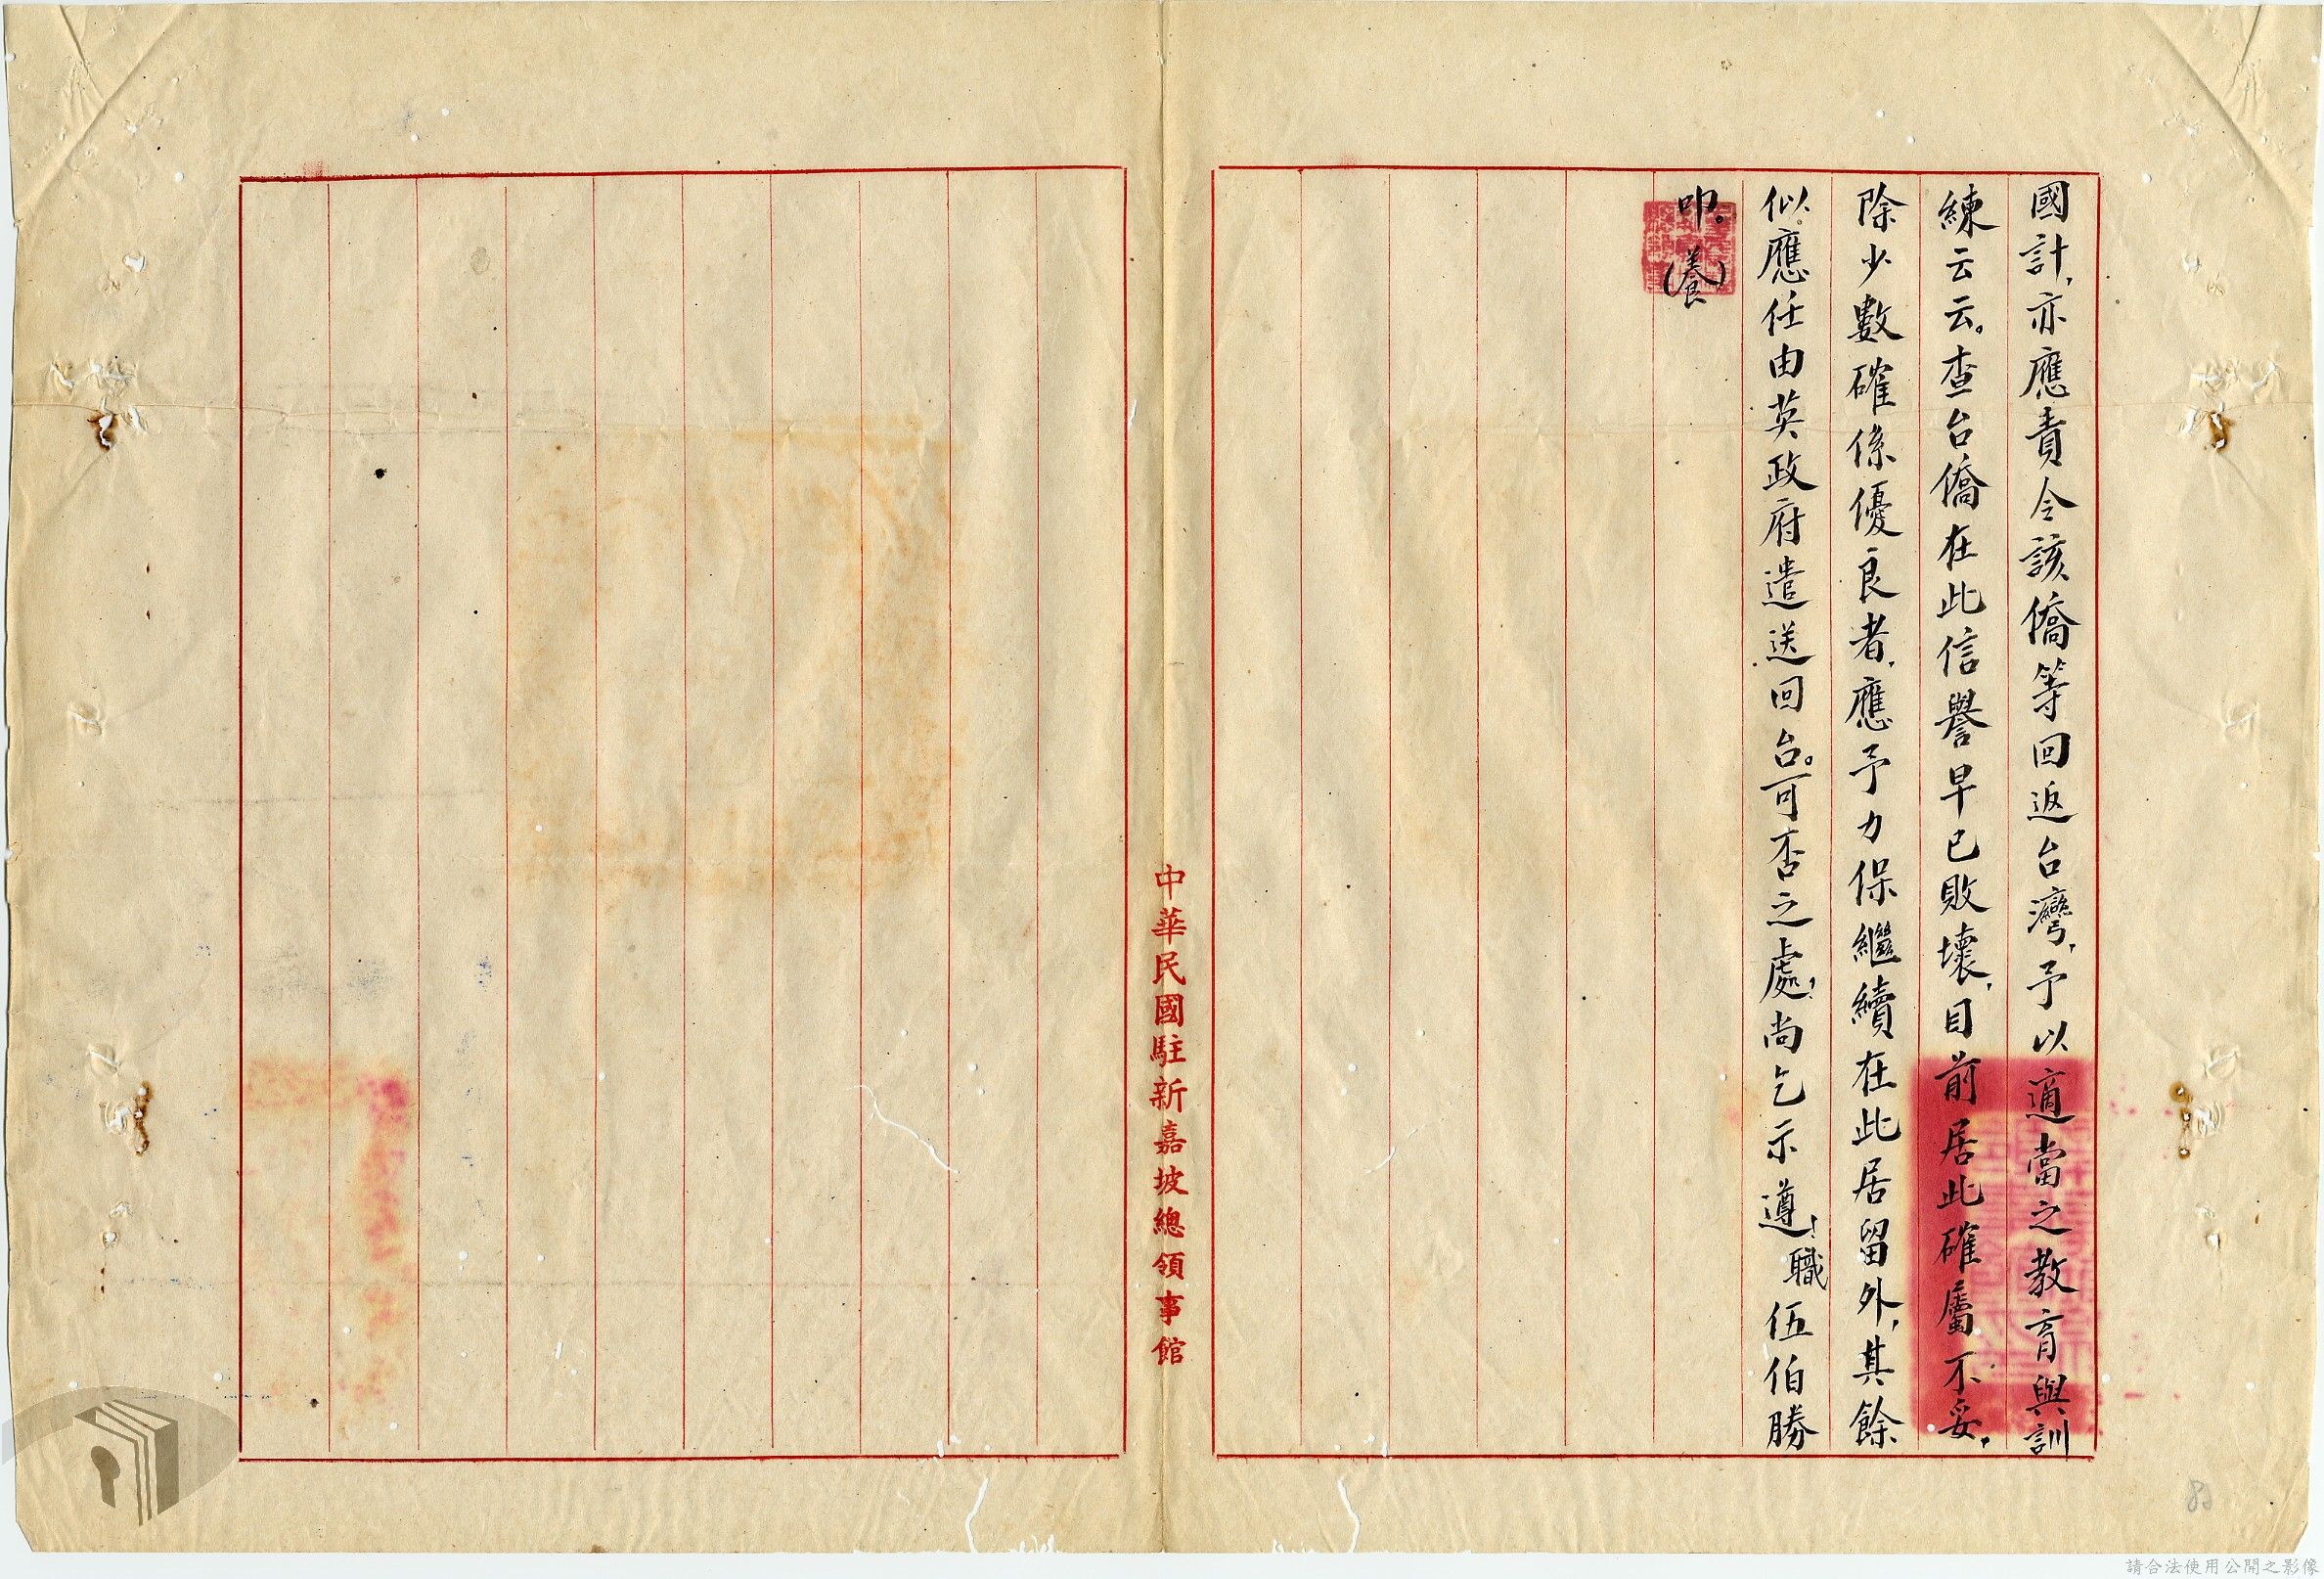 國計，亦應責令該僑等回返台灣，予以適當之教育與訓
練云云。查台僑在此信譽早已敗壞，目前居此確屬不妥，
除少數確係優良者，應予力保繼續在此居留外，其餘
似應任由英政府遣送回台。可否之處，尚乞示遵！職伍伯勝
叩。（養）
中華民國駐新嘉坡總領事館
請合法使用公開之影像